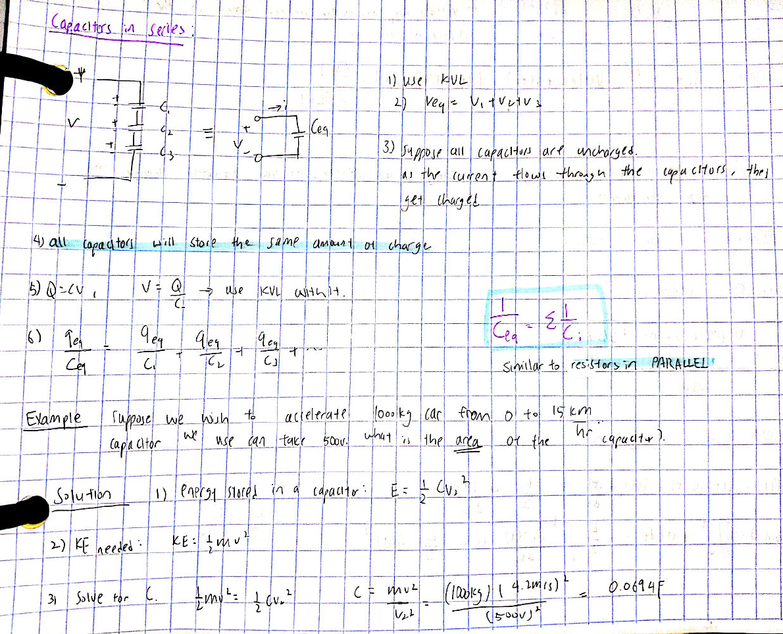 Capacitors in series:
+
V
-
+ C₁
+ C₂
+ C₃
≡
→ i
+
V
-
Ceq
1) use KVL
2) Veq = V₁ + V₂ + V₃
3) Suppose all capacitors are uncharged.
as the current flows through the capacitors, they
get charged
4) all capacitors will store the same amount of charge
5) Q=CV, V = Q/C → use KVL with it.
6) qeq/Ceq = qeq/C₁ + qeq/C₂ + qeq/C₃ + ...
1/Ceq = Σ 1/Cᵢ
similar to resistors in PARALLEL
Example Suppose we wish to accelerate 1000kg car from 0 to 15 km/hr.
capacitor we use can take 500V. what is the area of the capacitor?
Solution 1) energy stored in a capacitor: E = ½ CV²
2) KE needed: KE = ½mv²
3) Solve for C. ½mv² = ½CV² C = mv²/V² = (1000kg)(4.2m/s)²/(500V)² = 0.0694F